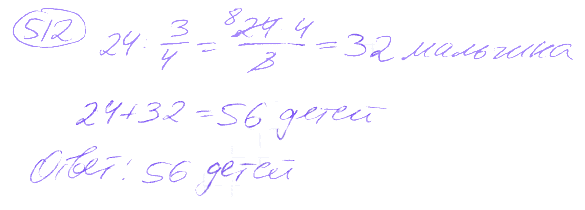 512 24 : 3/4 = 8 24 4 / 3 = 32 мальчика
24+32 = 56 детей
Ответ: 56 детей